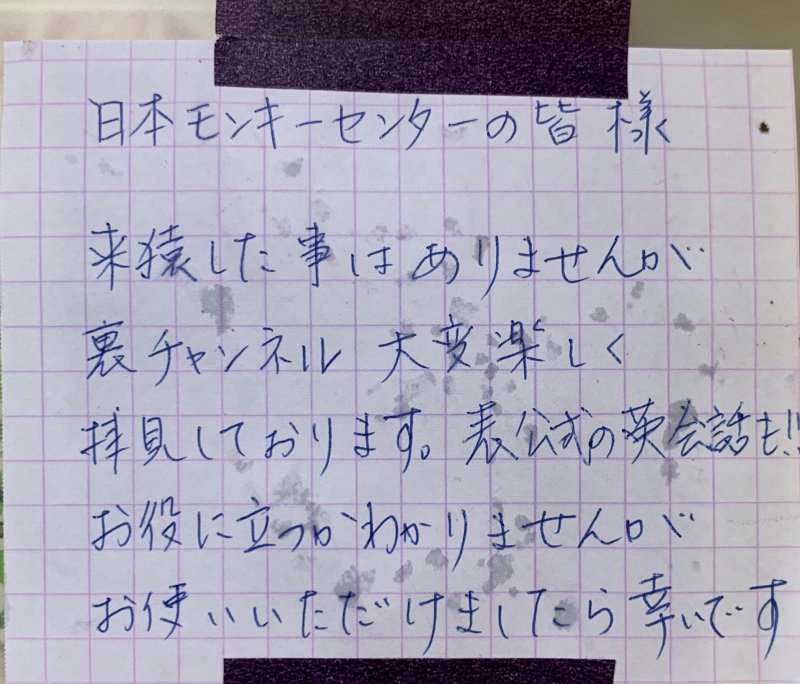 日本モンキーセンターの皆様
来猿した事はありませんが
裏チャンネル 大変楽しく
拝見しております。表公式の英会話も!!
お役に立つかわかりませんが
お使いいただけましたら幸いです